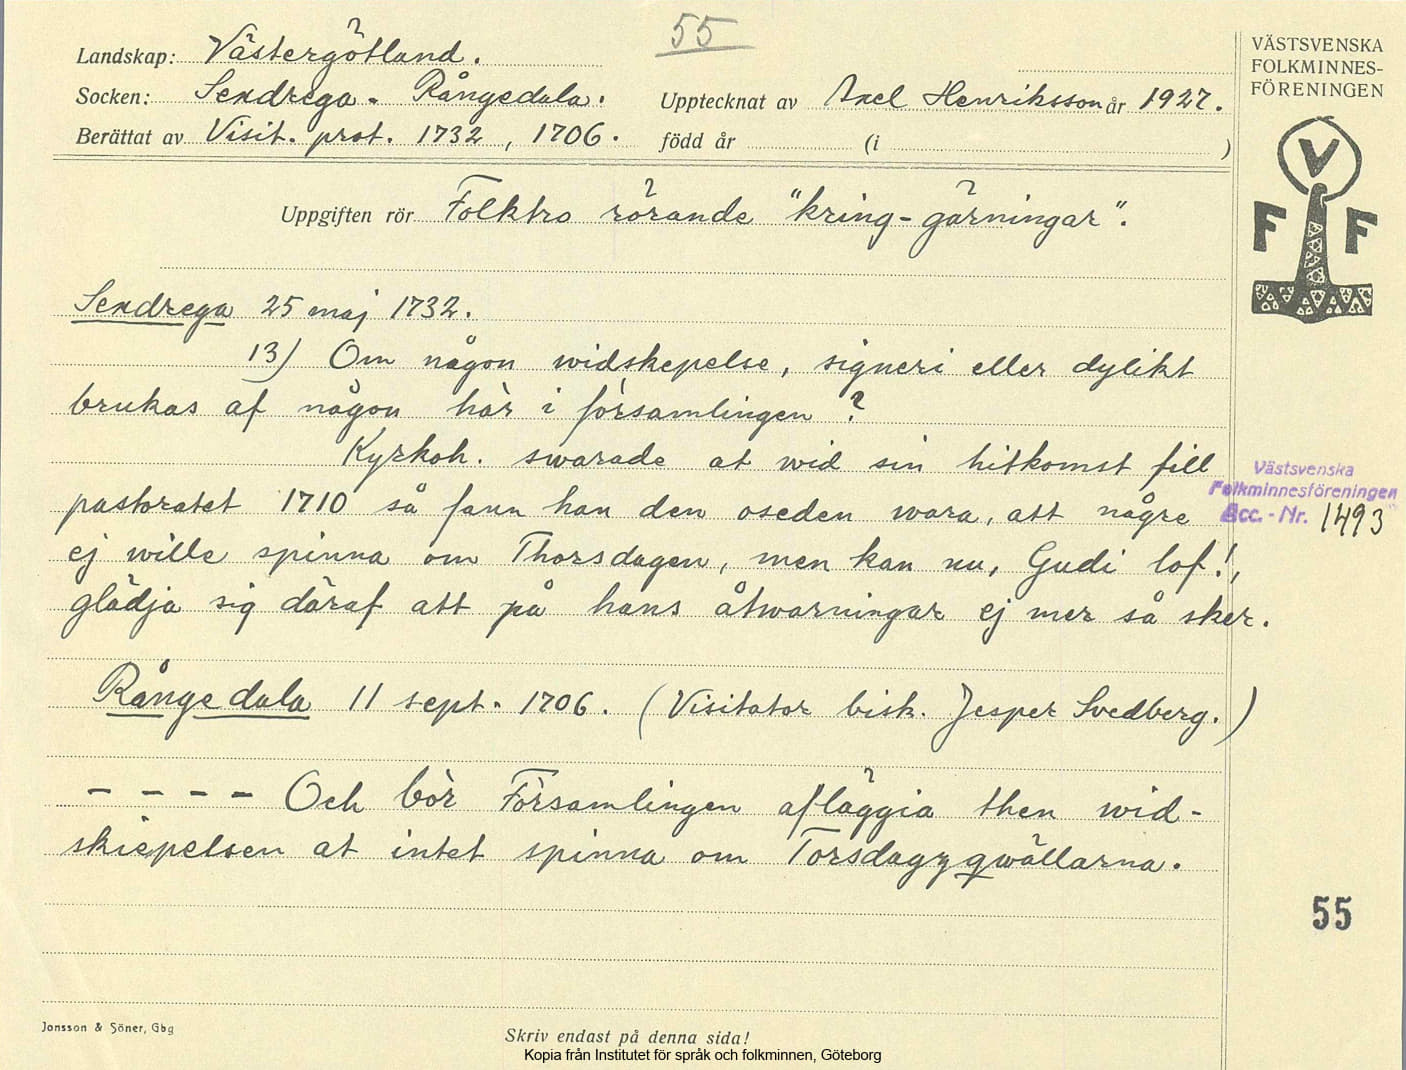 55
Landskap: Västergötland.
Socken: Sexdrega - Rångedala.
Upptecknat av Axel Henriksson år 1927.
Berättat av Visit. prot. 1732, 1706.
född år (i )
VÄSTSVENSKA
FOLKMINNES-
FÖRENINGEN
V
F F
Uppgiften rör Folktro rörande "kring-gärningar".
Sexdrega 25 maj 1732.
13) Om någon widskepelse, signeri eller dylikt
brukas af någon här i församlingen?
Kyrkoh. swarade at wid sin hitkomst till
pastoratet 1710 så fann han den oseden wara, att någre
ej wille spinna om Thorsdagen, men kan nu, Gudi lof!,
glädja sig däraf att på hans åtwarningar ej mer så sker.
Västsvenska
Folkminnesföreningen
Acc.-Nr. 1493
Rångedala 11 sept. 1706. (Visitator bisk. Jesper Svedberg.)
- - - - Och bör Församlingen afläggia then wid-
skiepelsen at intet spinna om Torsdagzqwällarna.
55
Jonsson & Söner, Gbg
Skriv endast på denna sida!
Kopia från Institutet för språk och folkminnen, Göteborg